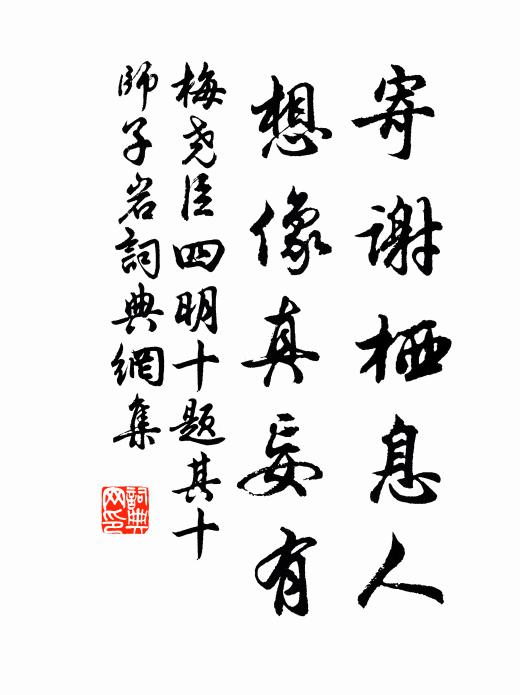 寄谢栖息人
想像真妄有
梅尧臣四明十题其十
师子岩詞典網集
詞典
网印